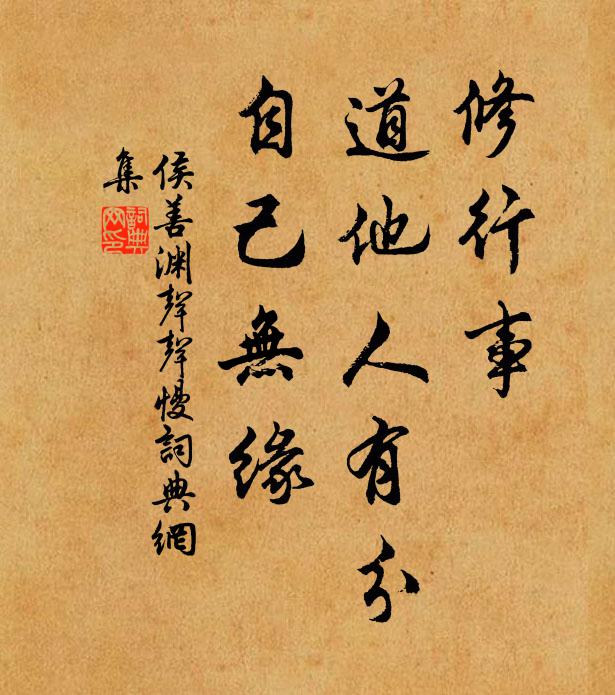 修行事
道他人有分
自己無緣
侯善渊聲聲慢詞典網
集
詞典
网印